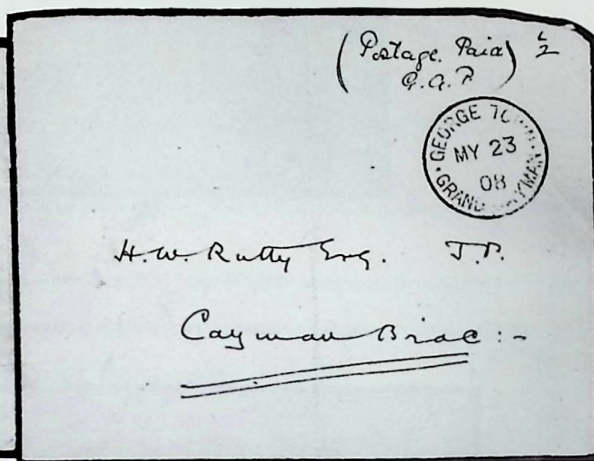 (Postage Paid) ½
G.A.R
GEORGE TOWN
MY 23
08
GRAND CAYMAN
H.W. Rutty Esq. J.P.
Cayman Brac :-